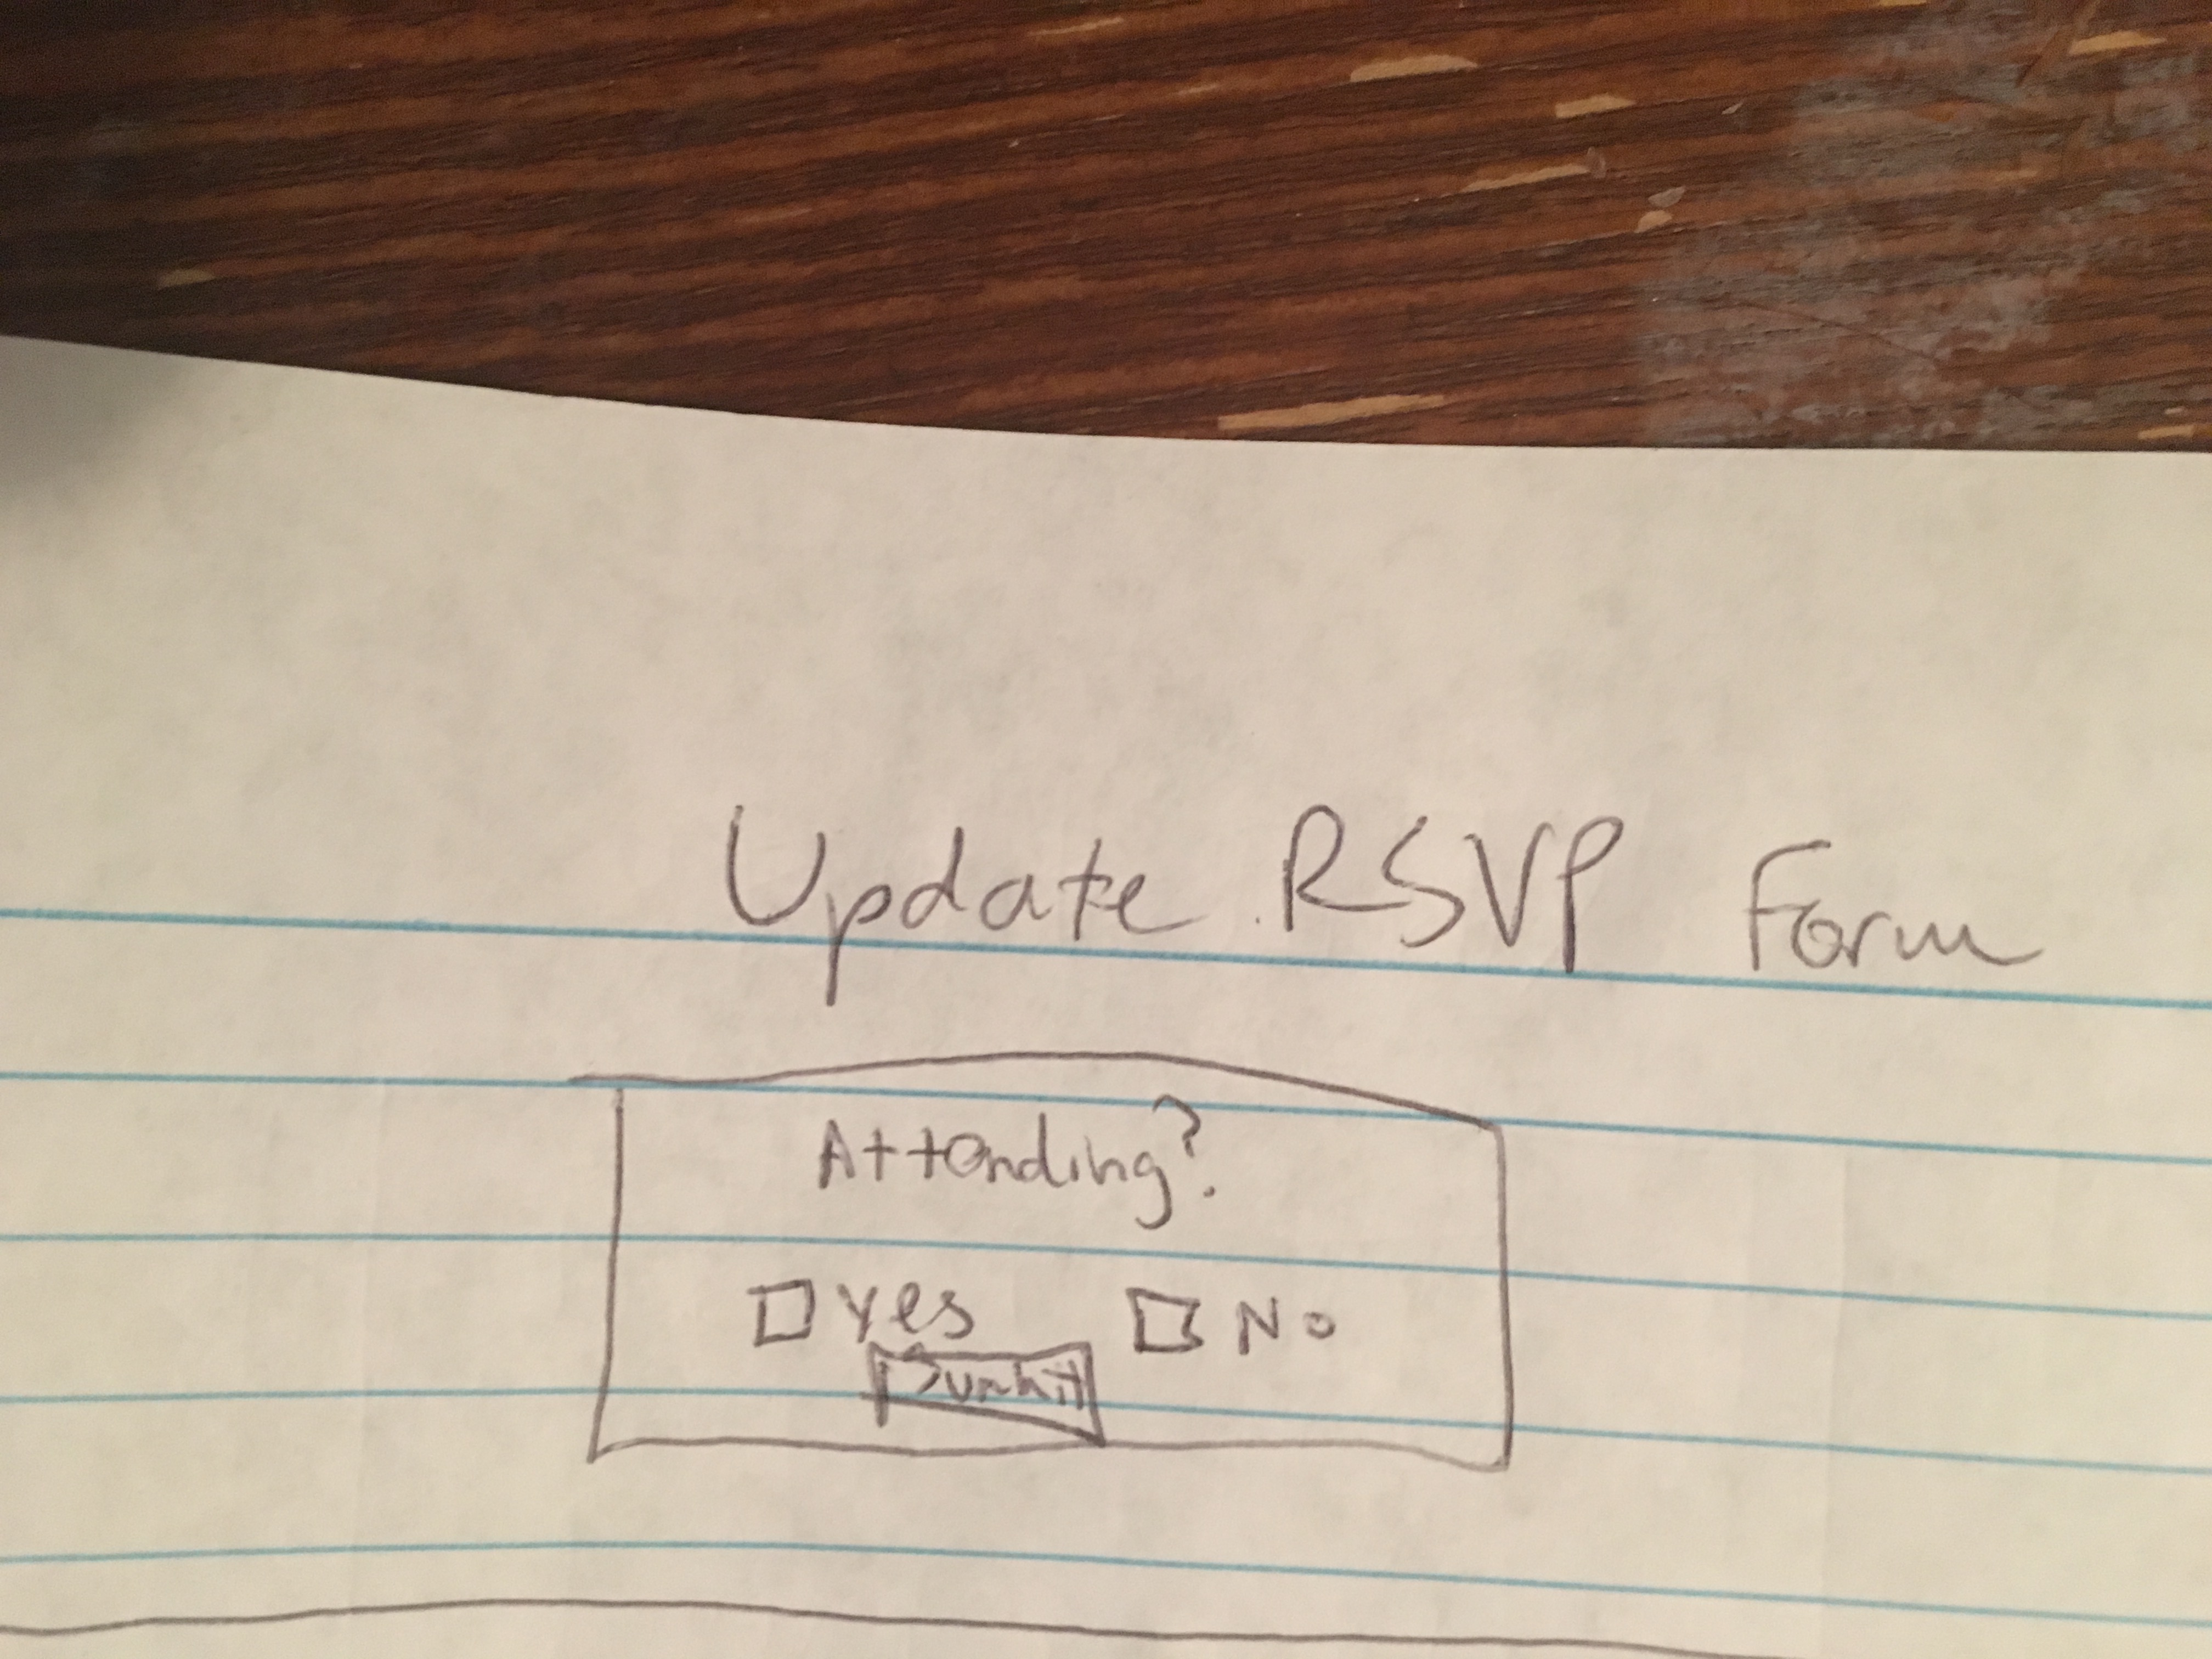 Update RSVP Form
Attending?
Yes No
Submit